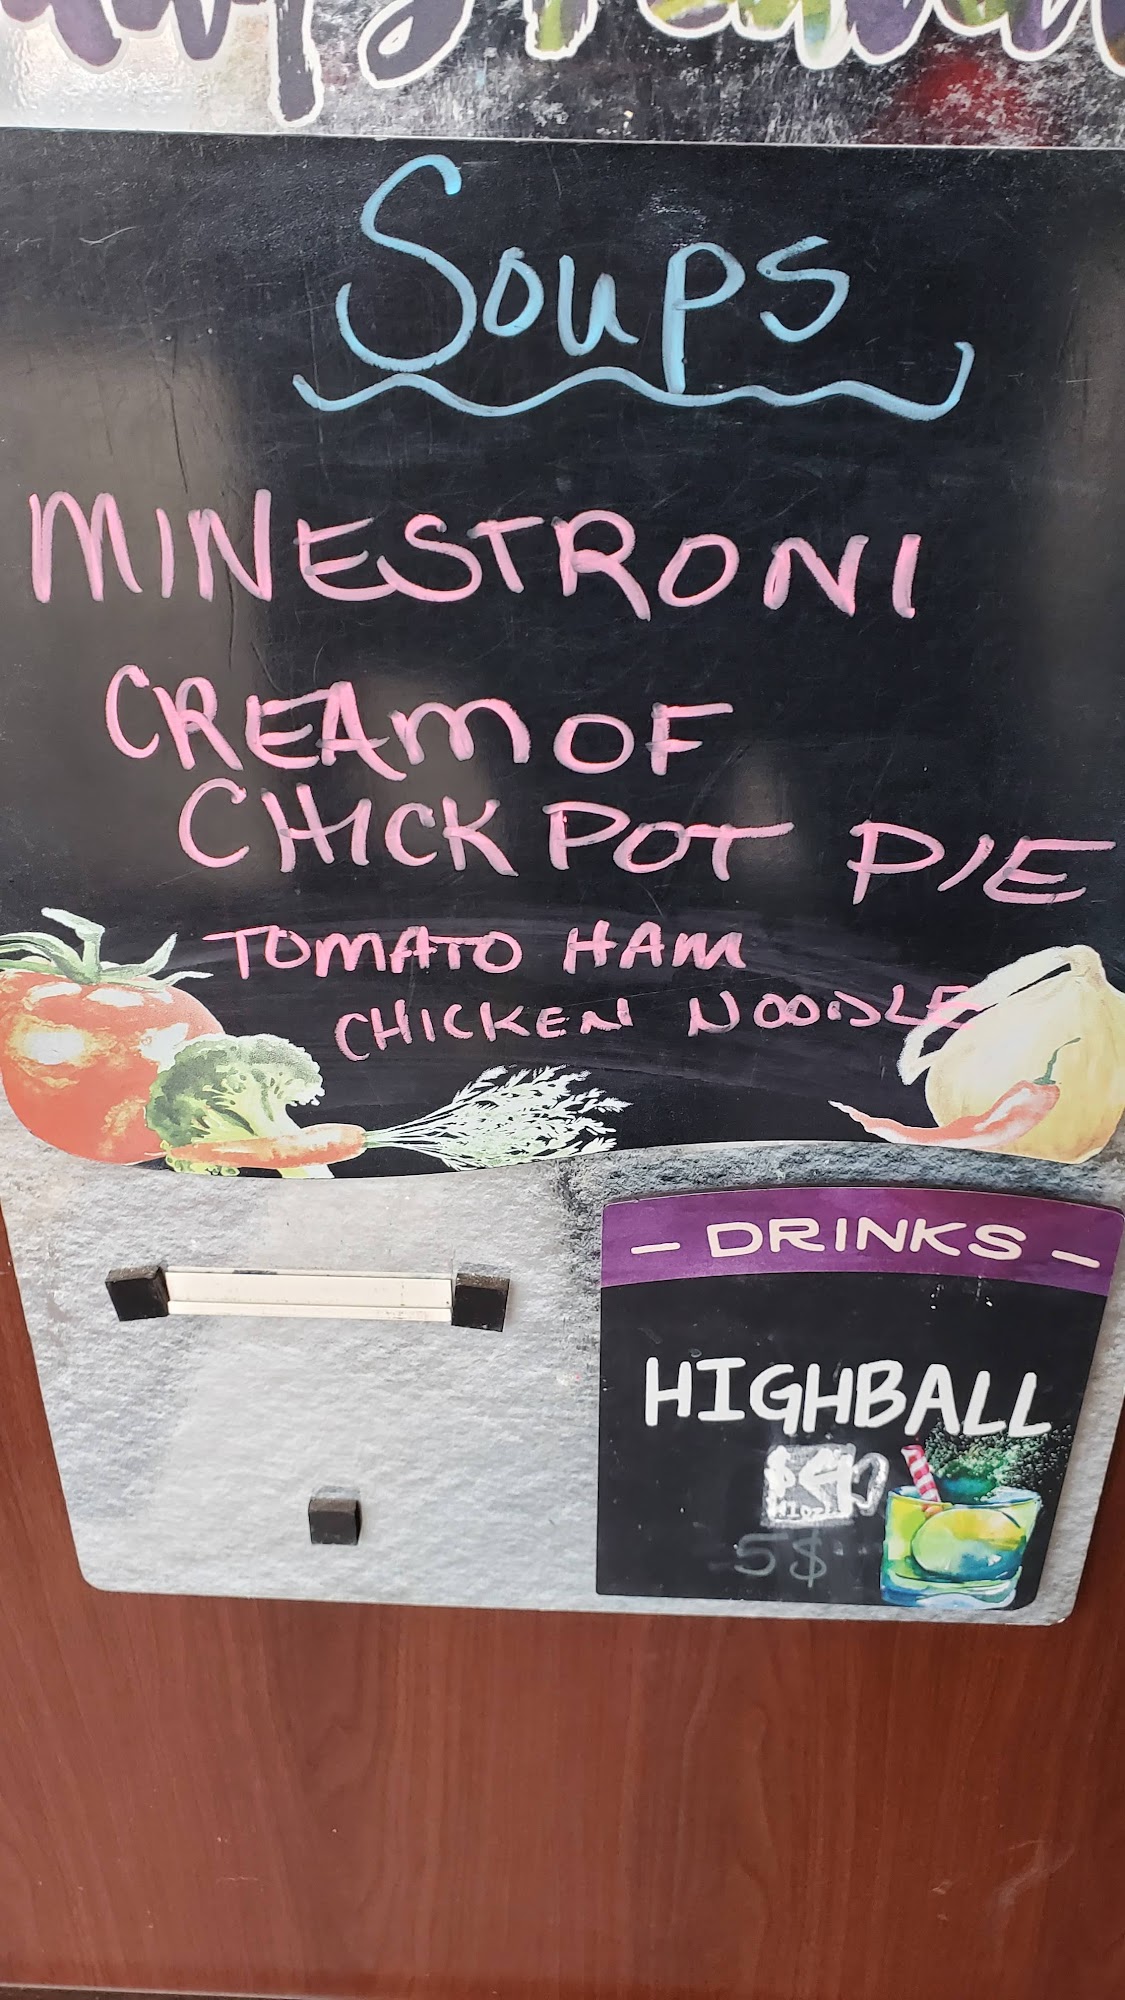 Soups
MINESTRONI
CREAM OF
CHICK POT PIE
TOMATO HAM
CHICKEN NOODLE
- DRINKS -
HIGHBALL
5$